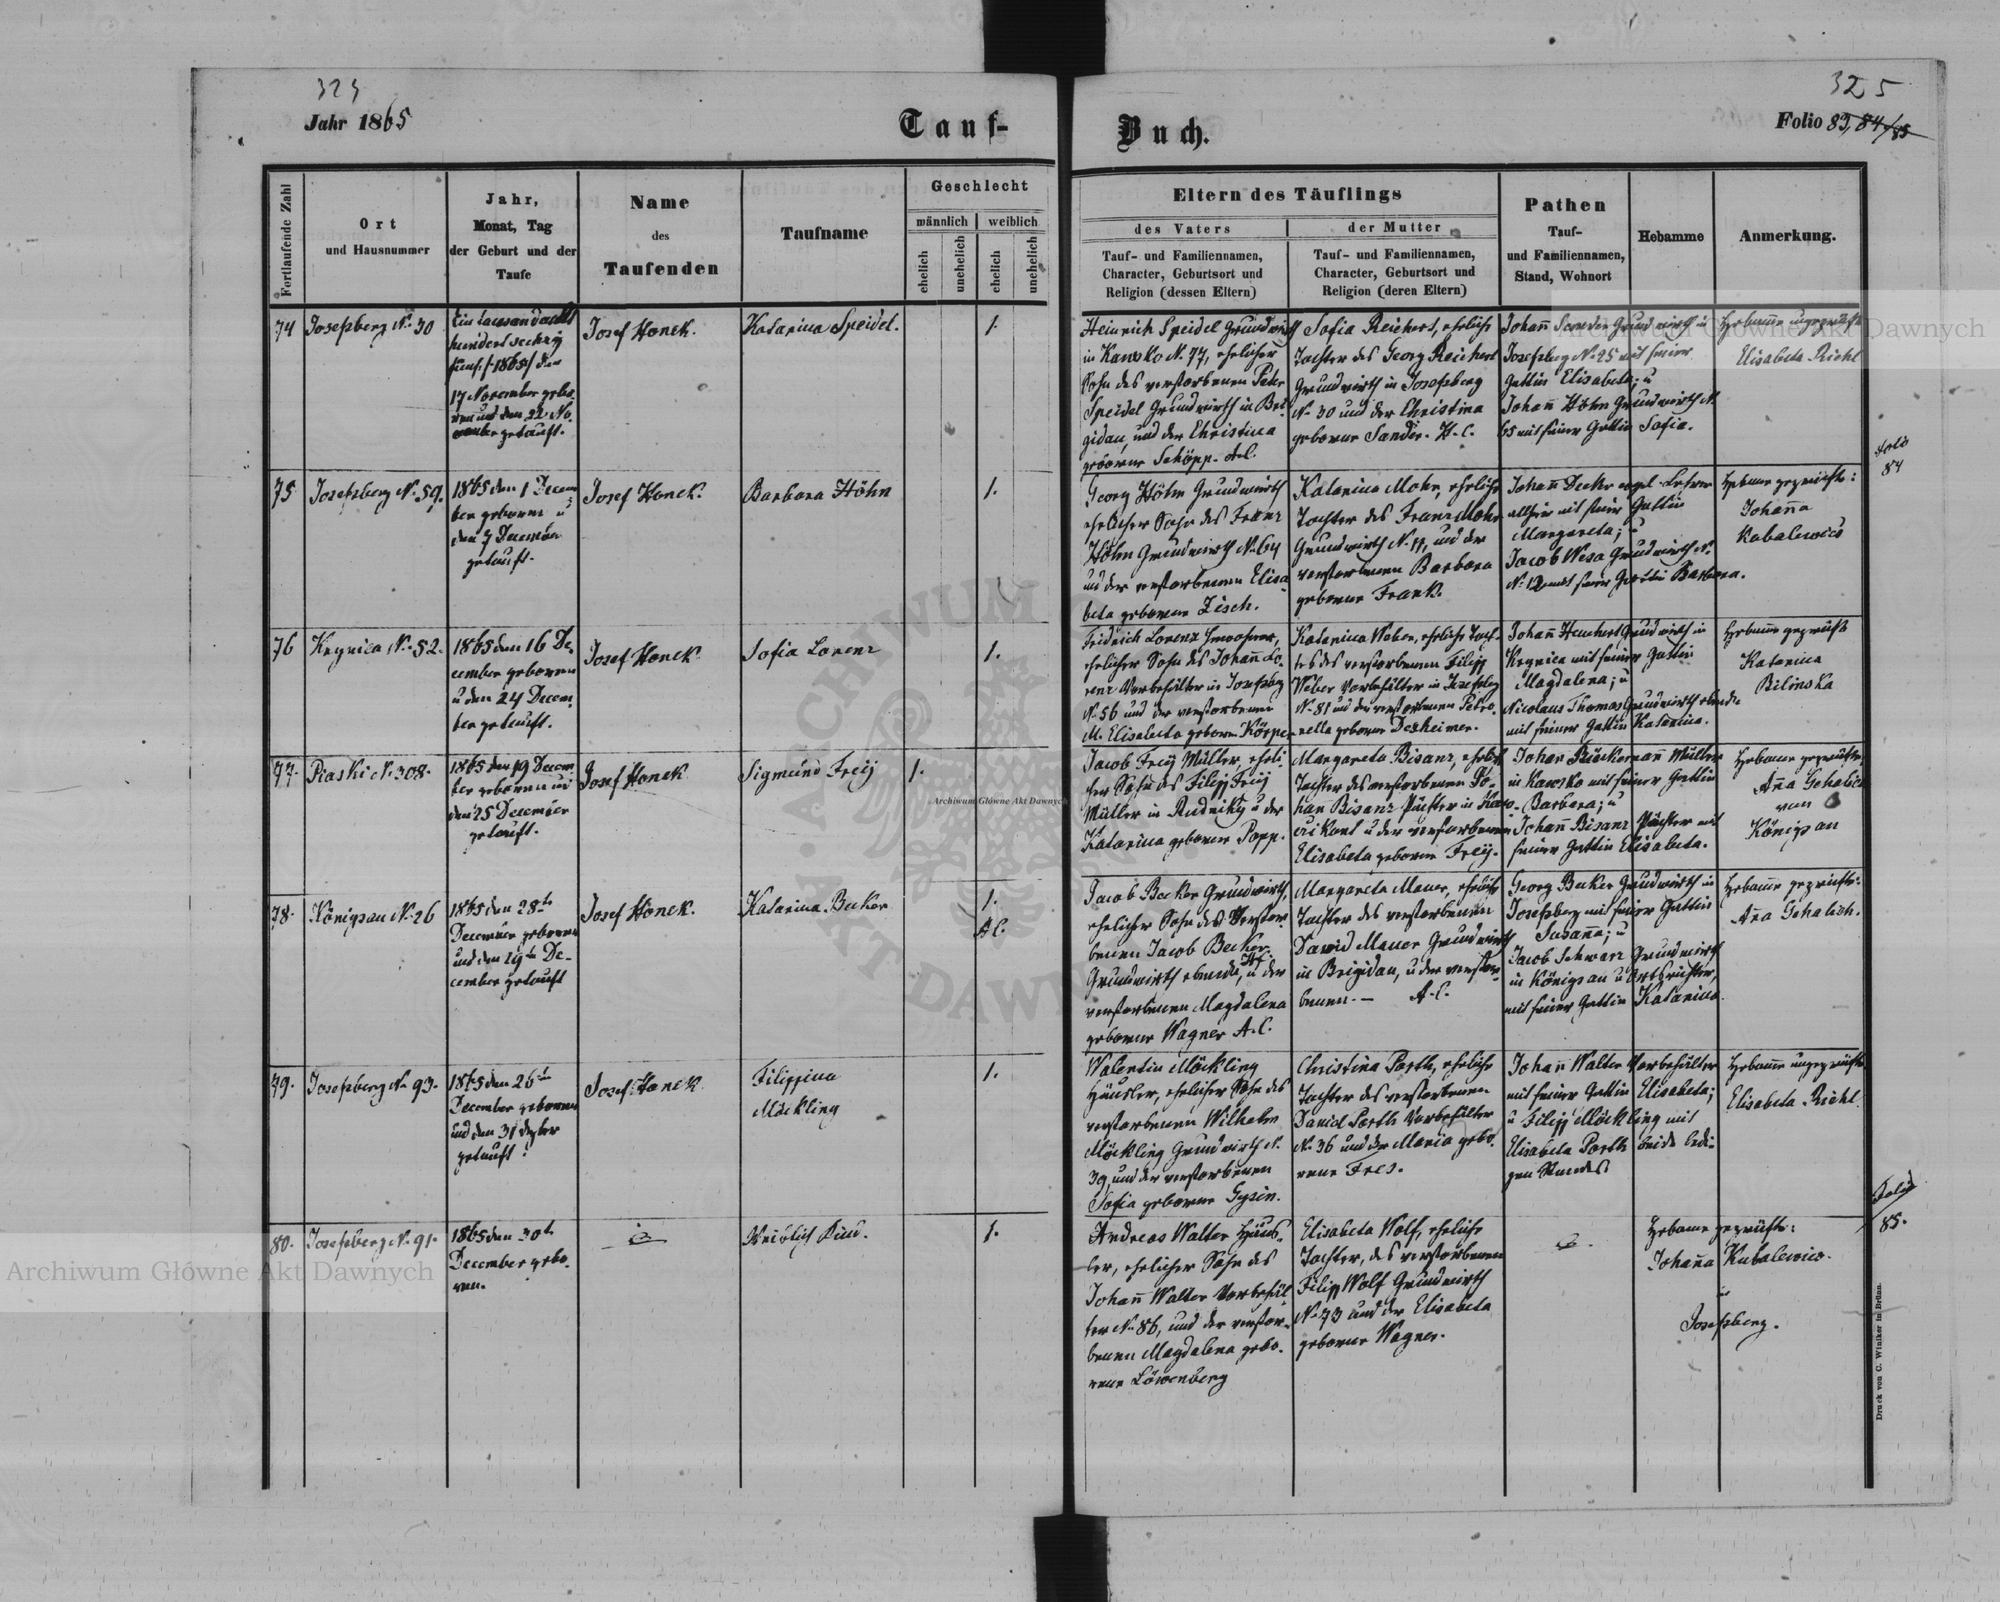 323
Jahr 1865
Tauf-
Fortlaufende Zahl
Ort
und Hausnummer
Jahr,
Monat, Tag
der Geburt und der
Taufe
Name
des
Taufenden
Taufname
Geschlecht
männlich
weiblich
ehelich
unehelich
ehelich
unehelich
74
Josefsberg N. 30
Ein tausend acht
hundert sechzig
fünf /:1865:/ den
17 November gebo-
ren und den 22 No-
vember getauft.
Josef Honek.
Katarina Speidel.
1.
75
Josefsberg N. 59.
1865 den 1 Decem
ber geboren u
den 7 December
getauft.
Josef Honek.
Barbara Höhn
1.
76
Krynica N. 52.
1865 den 16 De-
cember geboren
u den 24 Decem-
ber getauft.
Josef Honek.
Sofia Lorenz
1.
77.
Piaski N. 308.
1865 den 19 Decem
ber geboren und
den 25 December
getauft.
Josef Honek
Sigmund Freÿ
1.
78.
Königsau N. 26
1865 den 28ten
December geboren
und den 29ten De-
cember getauft
Josef Honek.
Katarina Becker
1.
A.C.
79.
Josefsberg N. 93.
1865 den 26ten
December geboren
und den 31 dezber
getauft.
Josef Honek
Filippina
Möckling
1.
80.
Josefsberg N. 91.
1865 den 30ten
December gebo.
ren.
Weiblich Kind.
1.
325
Buch.
Folio 83, 84/85
Eltern des Täuflings
des Vaters
Tauf- und Familiennamen,
Character, Geburtsort und
Religion (dessen Eltern)
der Mutter
Tauf- und Familiennamen,
Character, Geburtsort und
Religion (deren Eltern)
Pathen
Tauf-
und Familiennamen,
Stand, Wohnort
Hebamme
Anmerkung.
Heinrich Speidel Grundwirth
in Kawsko N. 77, ehelicher
Sohn des verstorbenen Peter
Speidel Grundwirth in Bri-
gidau, und der Christina
geborene Schöpp. A.C.
Sofia Reichert, eheliche
Tochter des Georg Reichert
Grundwirth in Josefsberg
N. 30 und der Christina
geborene Sander. H.C.
Johann Sander Grundwirth in
Josefsberg N. 25 mit seiner
Gattin Elisabeta; u
Johann Höhn Grundwirth N.
65 mit seiner Gattin Sofia.
Hebamme ungeprüfte
Elisabeta Riehl
Georg Höhn Grundwirth
ehelicher Sohn des Franz
Höhn Grundwirth N. 64
und der verstorbenen Elisa-
beta geborene Zisch.
Katarina Mohr, eheliche
Tochter des Franz Mohr
Grundwirth N. 11, und der
verstorbenen Barbara
geborene Frank.
Johann Decker evgel. Lehrer
allhier mit seiner Gattin
Margareta; u
Jacob Wesa Grundwirth N.
N. 12 mit seiner Gattin Barbara.
Hebamme geprüfte:
Johanna
Kubalewics
Folio
84
Fridrich Lorenz Inwohner,
ehelicher Sohn des Johann Lo-
renz Vorbehälter in Josefsberg
N. 56 und der verstorbenen
M. Elisabeta geboren Körper
Katarina Weber, eheliche Toch-
ter des verstorbenen Filipp
Weber Vorbehälter in Josefsberg
N. 81 und der verstorbenen Petro-
nella geborene Desheimer.
Krynica mit seiner Gattin
Magdalena; u
Nicolaus Thomas Grundwirth ebenda
mit seiner Gattin Katarina.
Hebamme geprüfte
Katarina
Bilinska
Jacob Freÿ Müller, eheli-
cher Sohn des Filipp Freÿ
Müller in Rudniky u der
Katarina geborene Popp.
Margareta Bisanz, eheliche
Tochter des verstorbenen Jo-
han Bisanz Pächter in
u der verstorbenen
Elisabeta geborene Freÿ.
Müller
in Kawsko mit seiner Gattin
Barbara; u
Johann Bisanz Pächter mit
seiner Gattin Elisabeta.
Hebamme geprüfte
Anna Gchalich
von
Königsau
Jacob Becker Grundwirth,
ehelicher Sohn des verstor-
benen Jacob Becker
H.C.
Grundwirth ebenda, u der
verstorbenen Magdalena
geborene Wagner A.C.
Margareta Mauer, eheliche
Tochter des verstorbenen
Dawid Mauer Grundwirth
in Brigidau, u der verstor-
benen. — A.C.
Georg Becker Grundwirth in
Josefsberg mit seiner Gattin
Susanna; u
Jacob Schwarz Grundwirth
in Königsau u Ortsrichter,
mit seiner Gattin Katarina.
Hebamme geprüfte:
Anna Gchalich.
Walentin Möckling
Häusler, ehelicher Sohn des
verstorbenen Wilhelm
Möckling Grundwirth N.
39, und der verstorbenen
Sofia geborene Gysin.
Christina Porth, eheliche
Tochter des verstorbenen
Daniel Porth Vorbehälter
N. 36 und der Maria gebo-
rene Fres.
Johann Walter Vorbehälter
mit seiner Gattin Elisabeta;
u Filipp Möckling mit
Elisabeta Porth beide ledi-
gen Standes
Hebamme ungeprüfte
Elisabeta Riehl.
Folio
85.
Andreas Walter Häus-
ler, ehelicher Sohn des
Johann Walter Vorbehäl-
ter N. 86, und der verstor-
benen Magdalena gebo-
rene Löwenberg
Elisabeta Wolf, eheliche
Tochter, des verstorbenen
Filipp Wolf Grundwirth
N. 73 und der Elisabeta
geborene Wagner.
Hebamme geprüfte:
Johanna Kubalewics.
in
Josefsberg.
Druck von C. Winiker in Brünn.
Archiwum Główne Akt Dawnych
Archiwum Główne Akt Dawnych
Archiwum Główne Akt Dawnych
ARCHIWUM
AKT DAWNYCH